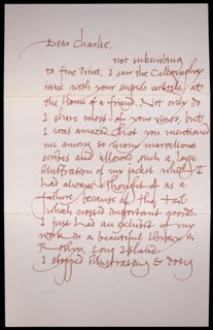 Dear Charlie,
not submitting
to fine Print, I saw the Calligraphy
issue with your superb article at
the home of a friend. Not only do
I share most of your views, but
I was amazed that you mentioned
me among so many marvellous
scribes and allowed such a large
illustration of my jacket which I
had always thought of as a
failure because of the tail
which crossed important goods.
I just had an exhibit of my
work in a beautiful library in
Roslyn, Long Island.
I stopped illustrating &